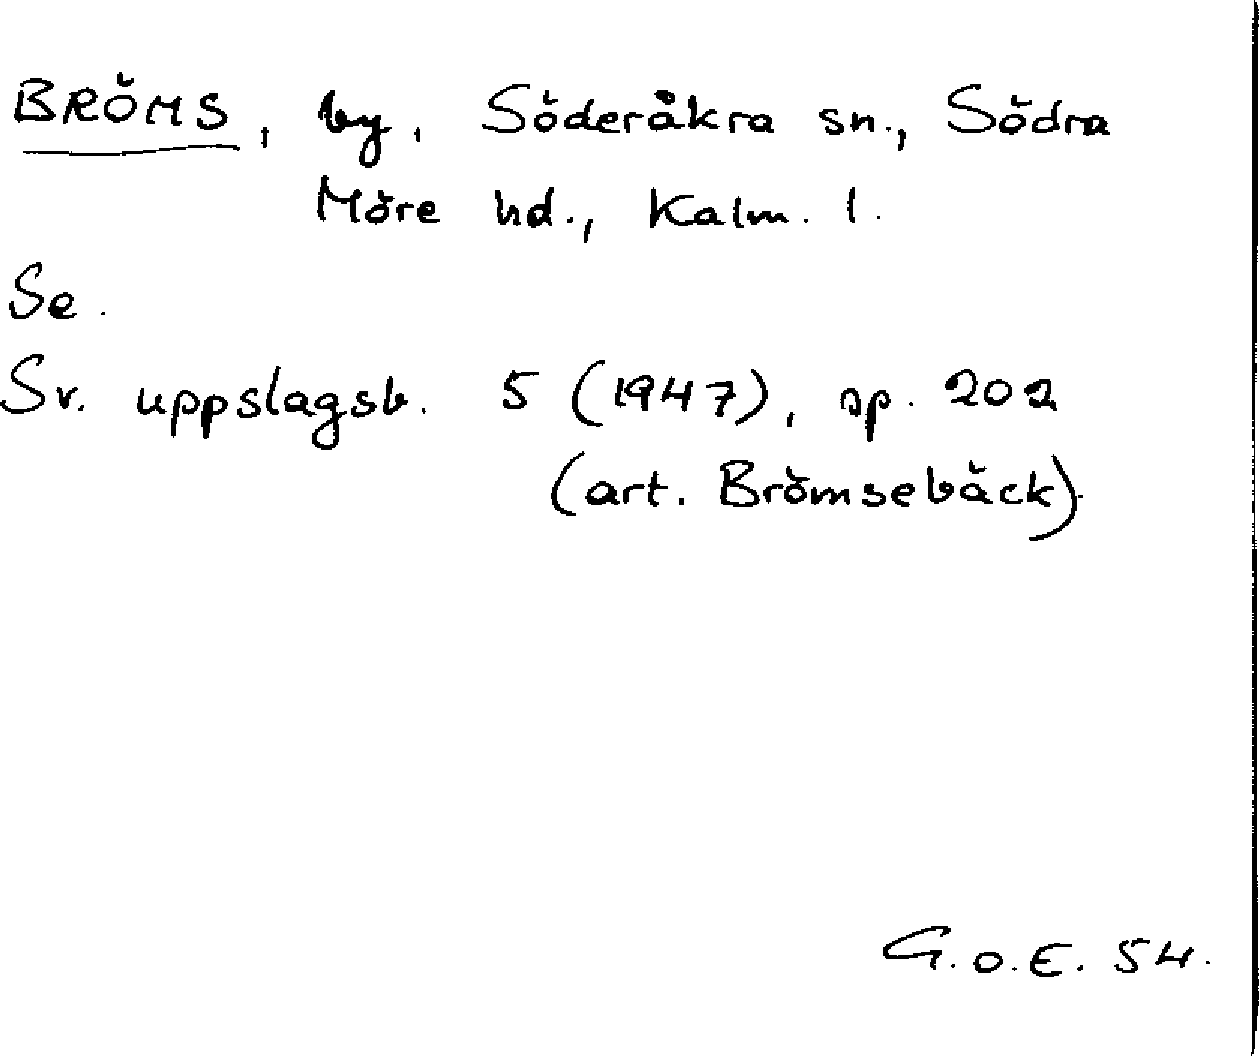 BRÖMS, by, Söderåkra sn., Södra
Möre hd., Kalm. l.
Se.
Sv. uppslagsb. 5 (1947), sp. 202
(art. Brömsebäck)
G.O.E. 54.